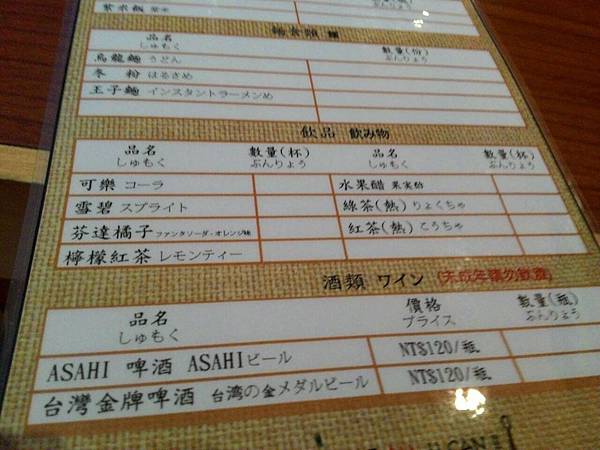 紫米飯 紫米
麵 麵
品名 數量(份)
しゅもく ぶんりょう
烏龍麵 うどん
冬 粉 はるさめ
王子麵 インスタントラーメンめ
飲品 飲み物
品名 數量(杯) 品名 數量(杯)
しゅもく ぶんりょう しゅもく ぶんりょう
可樂 コーラ 水果醋 果実酢
雪碧 スプライト 綠茶(熱) りょくちゃ
芬達橘子 ファンタソーダ-オレンジ味 紅茶(熱) こうちゃ
檸檬紅茶 レモンティー
酒類 ワイン (未成年請勿飲酒)
品名 價格 數量(瓶)
しゅもく プライス ぶんりょう
ASAHI 啤酒 ASAHIビール NT$120/瓶
台灣金牌啤酒 台湾の金メダルビール NT$120/瓶